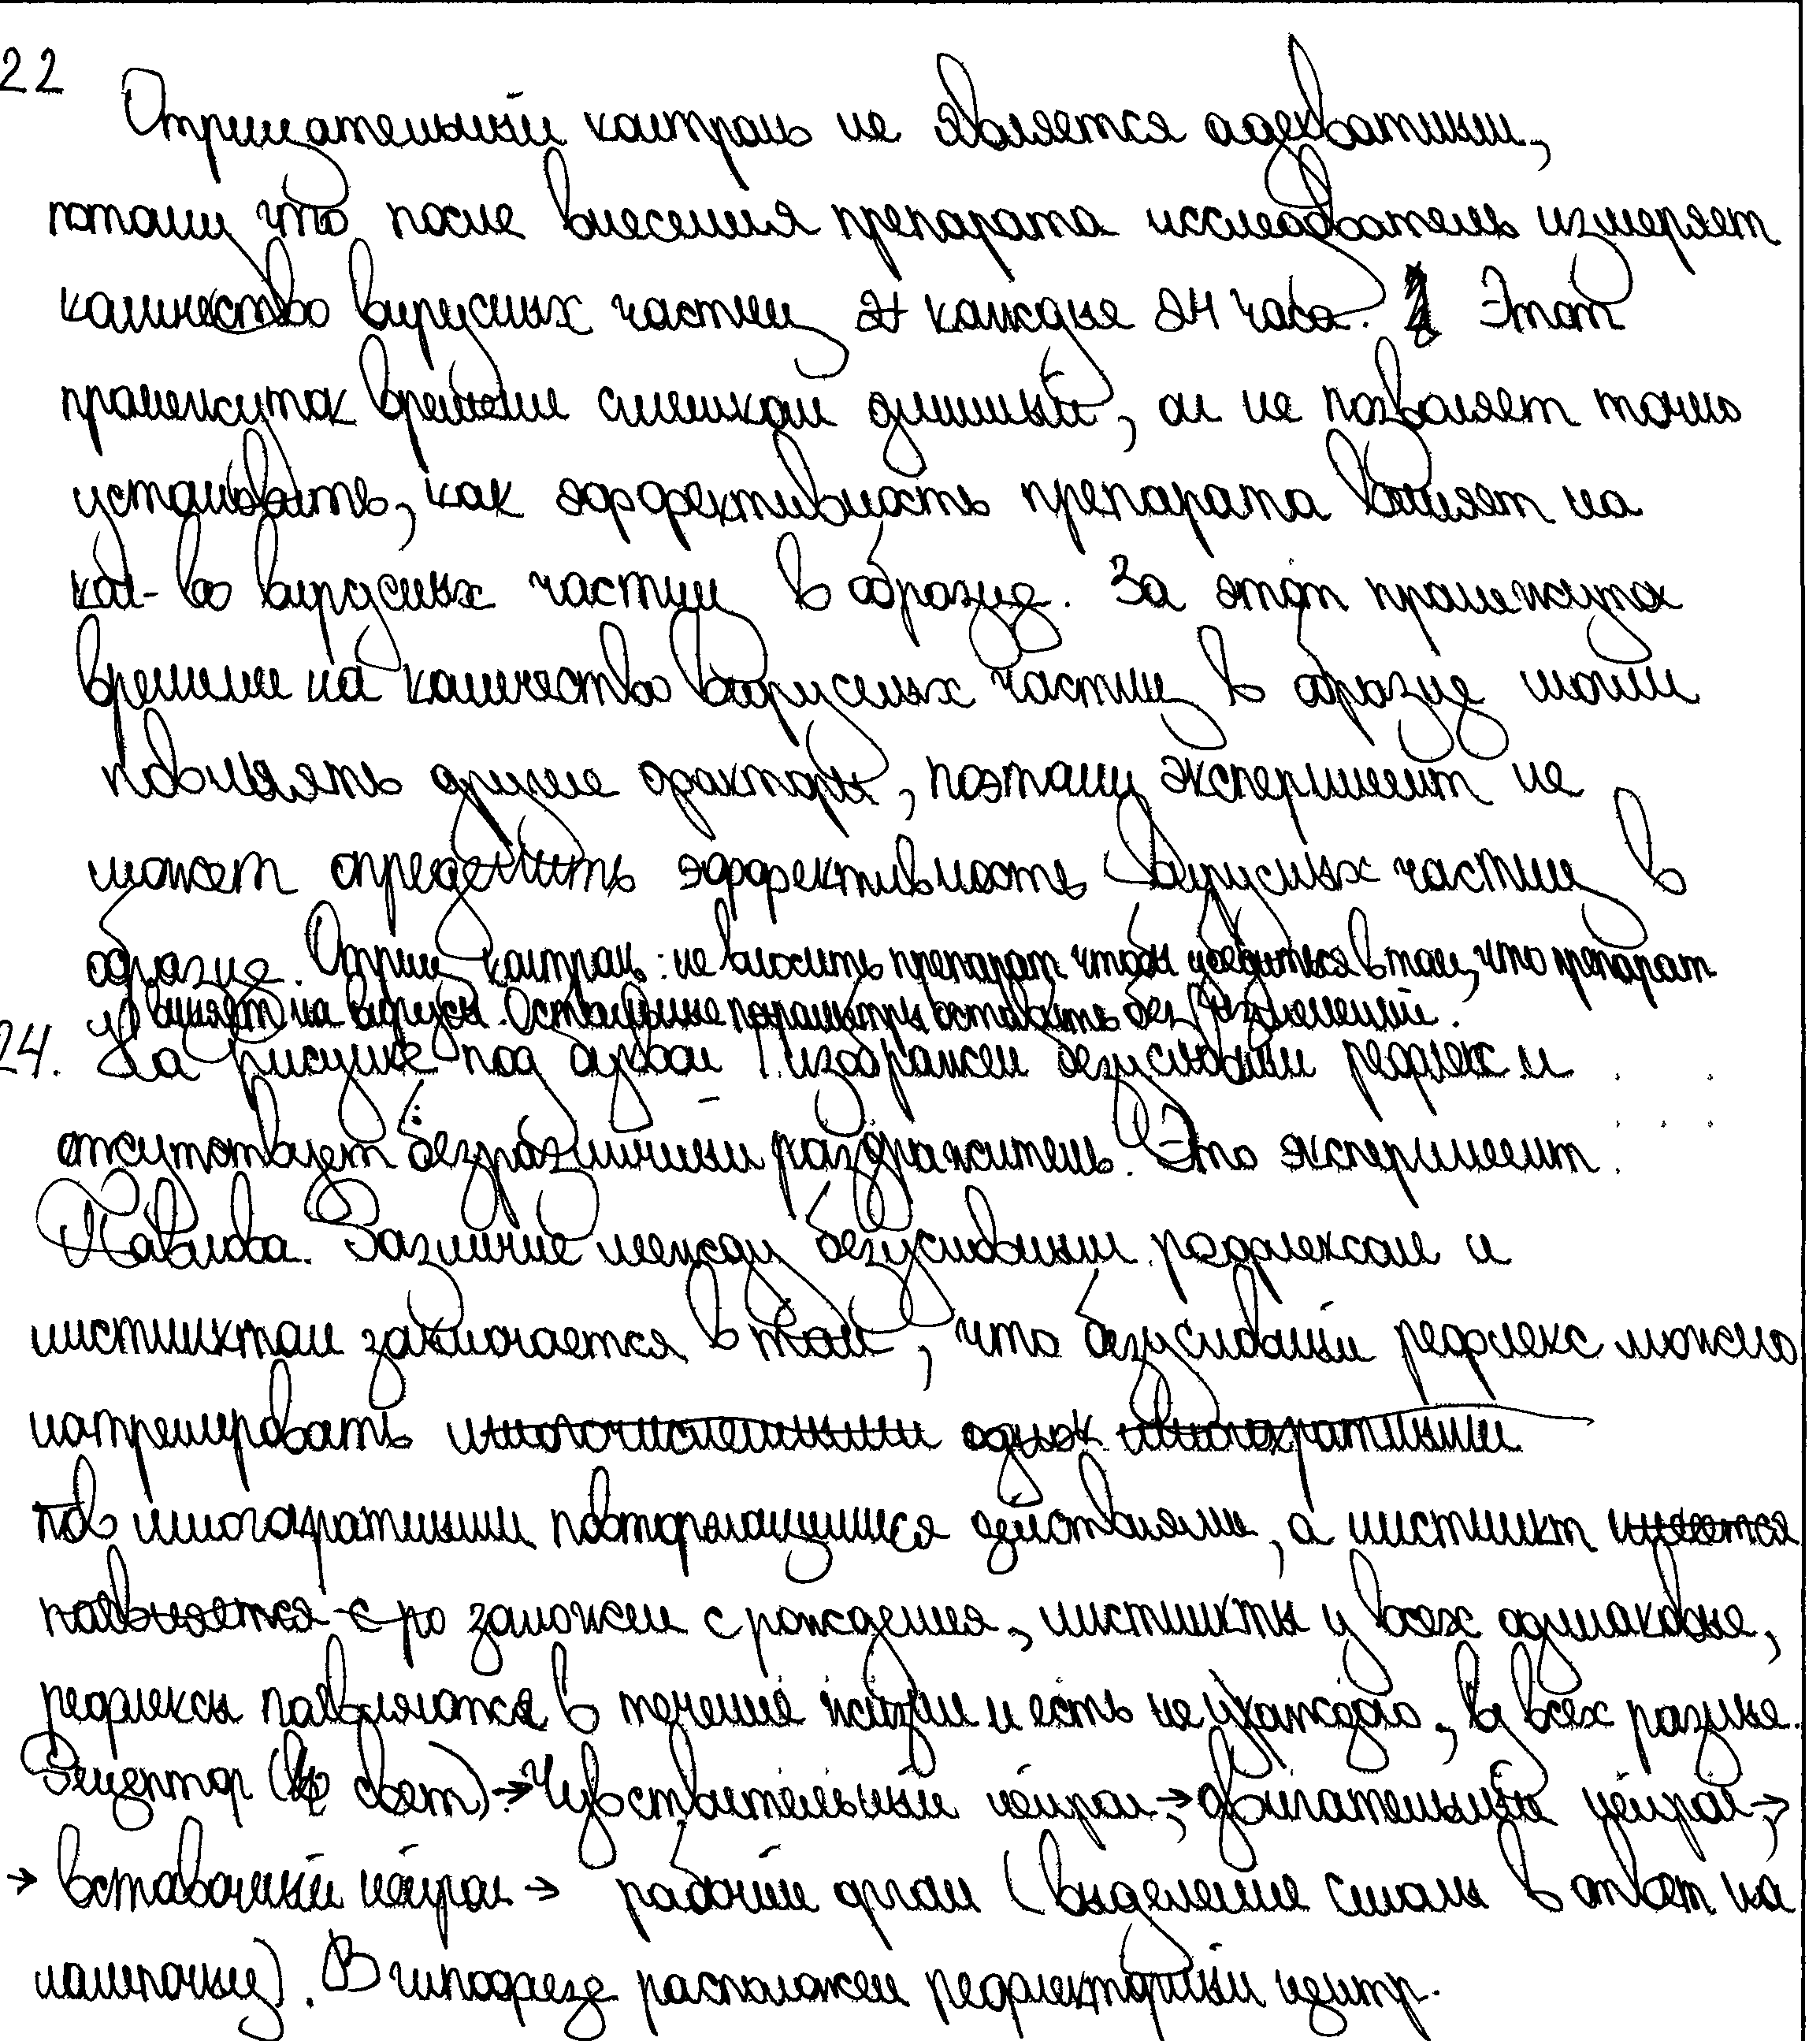 22
Отрицательный контроль не является адекватным,
потому что после внесения препарата исследователь измеряет
количество вирусных частиц каждые 24 часа. Этот
промежуток времени слишком длинный, он не позволяет точно
установить, как эффективность препарата влияет на
кол-во вирусных частиц в образце. За этот промежуток
времени на количество вирусных частиц в образце могли
повлиять другие факторы, поэтому эксперимент не
может определить эффективность вирусных частиц в
образце. Отриц контроль: не вносить препарат чтобы убедиться в том, что препарат
влияет на вирусы. Остальные параметры оставить без изменений.
24. На рисунке под буквой изображен безусловный рефлекс и
отсутствует безразличный раздражитель. Это эксперимент
Павлова. Различие между безусловным рефлексом и
инстинктом заключается в том, что безусловный рефлекс можно
натренировать многочисленными однок многократными
пов многократными повторяющимися действиями, а инстинкт имеется
появляется с ро заложен с рождения, инстинкты у всех одинаковые,
рефлексы появляются в течение жизни и есть не у каждого, у всех разные.
Рецептор (свет) → Чувствительный нейрон → двигательный нейрон →
→ вставочный нейрон → рабочий орган (выделение слюны в ответ на
лампочку). В гипофизе расположен рефлекторный центр.